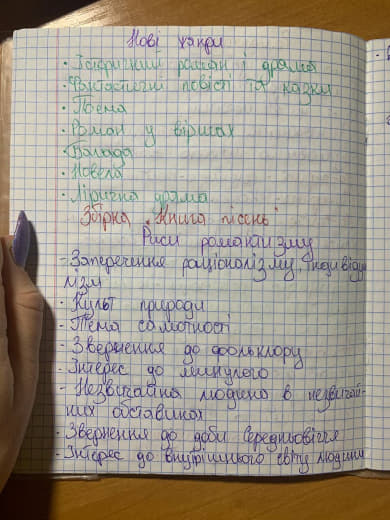 Нові жанри
· Історичний роман і драма
· Фантастичні повісті та казки
· Поема
· Роман у віршах
· Балада
· Новела
· Лірична драма
Збірка "Книга пісень"
Риси романтизму
- Заперечення раціоналізму, індивідуа
лізм
· Культ природи
- Тема самотності
- Звернення до фольклору
- Інтерес до минулого
- Незвичайна людина в незвичай-
них обставинах
· Звернення до доби Середньовіччя
- Інтерес до внутрішнього світу людини